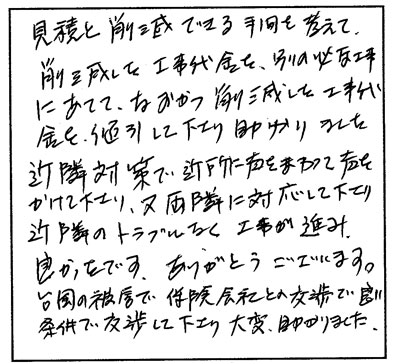 見積と削減できる手間を考えて、
削減した工事代金を、別の必要工事
にあてて、なおかつ削減した工事代
金を、値引して下さり助かりました
近隣対策で近所に声をまわって声を
かけて下さり、又両隣に対応して下さり
近隣のトラブルなく工事が進み、
良かったです。ありがとうございます。
台風の被害で保険会社との交渉で良い
条件で交渉して下さり大変、助かりました。